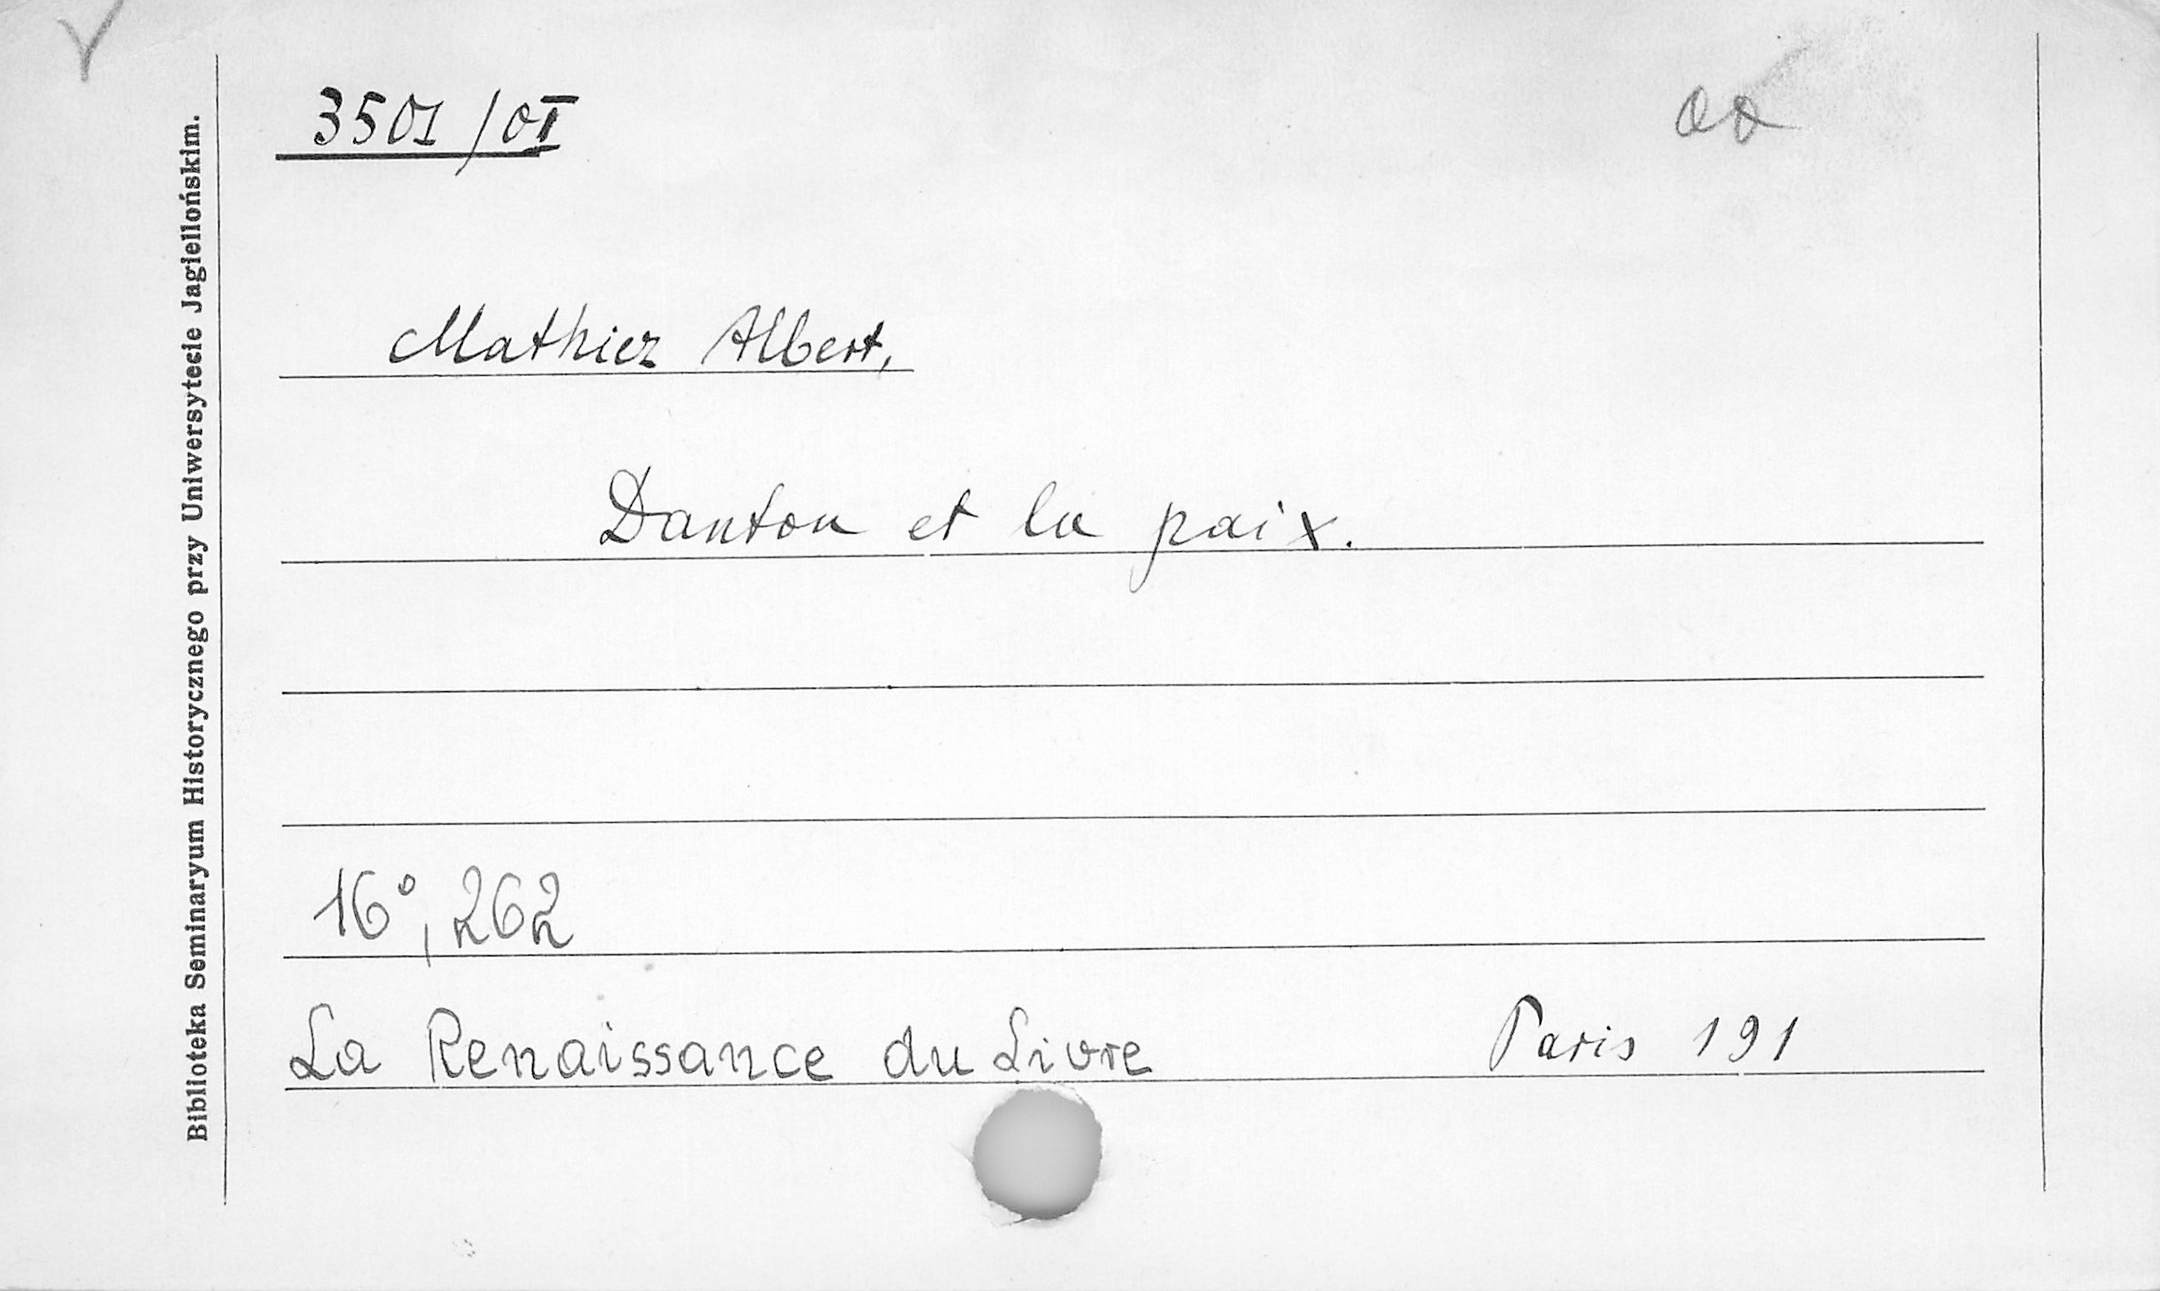 3501/0I
Mathiez Albert,
Danton et la paix.
16°, 262
La Renaissance du Livre Paris 191
Biblioteka Seminaryum Historycznego przy Uniwersytecie Jagiellońskim.